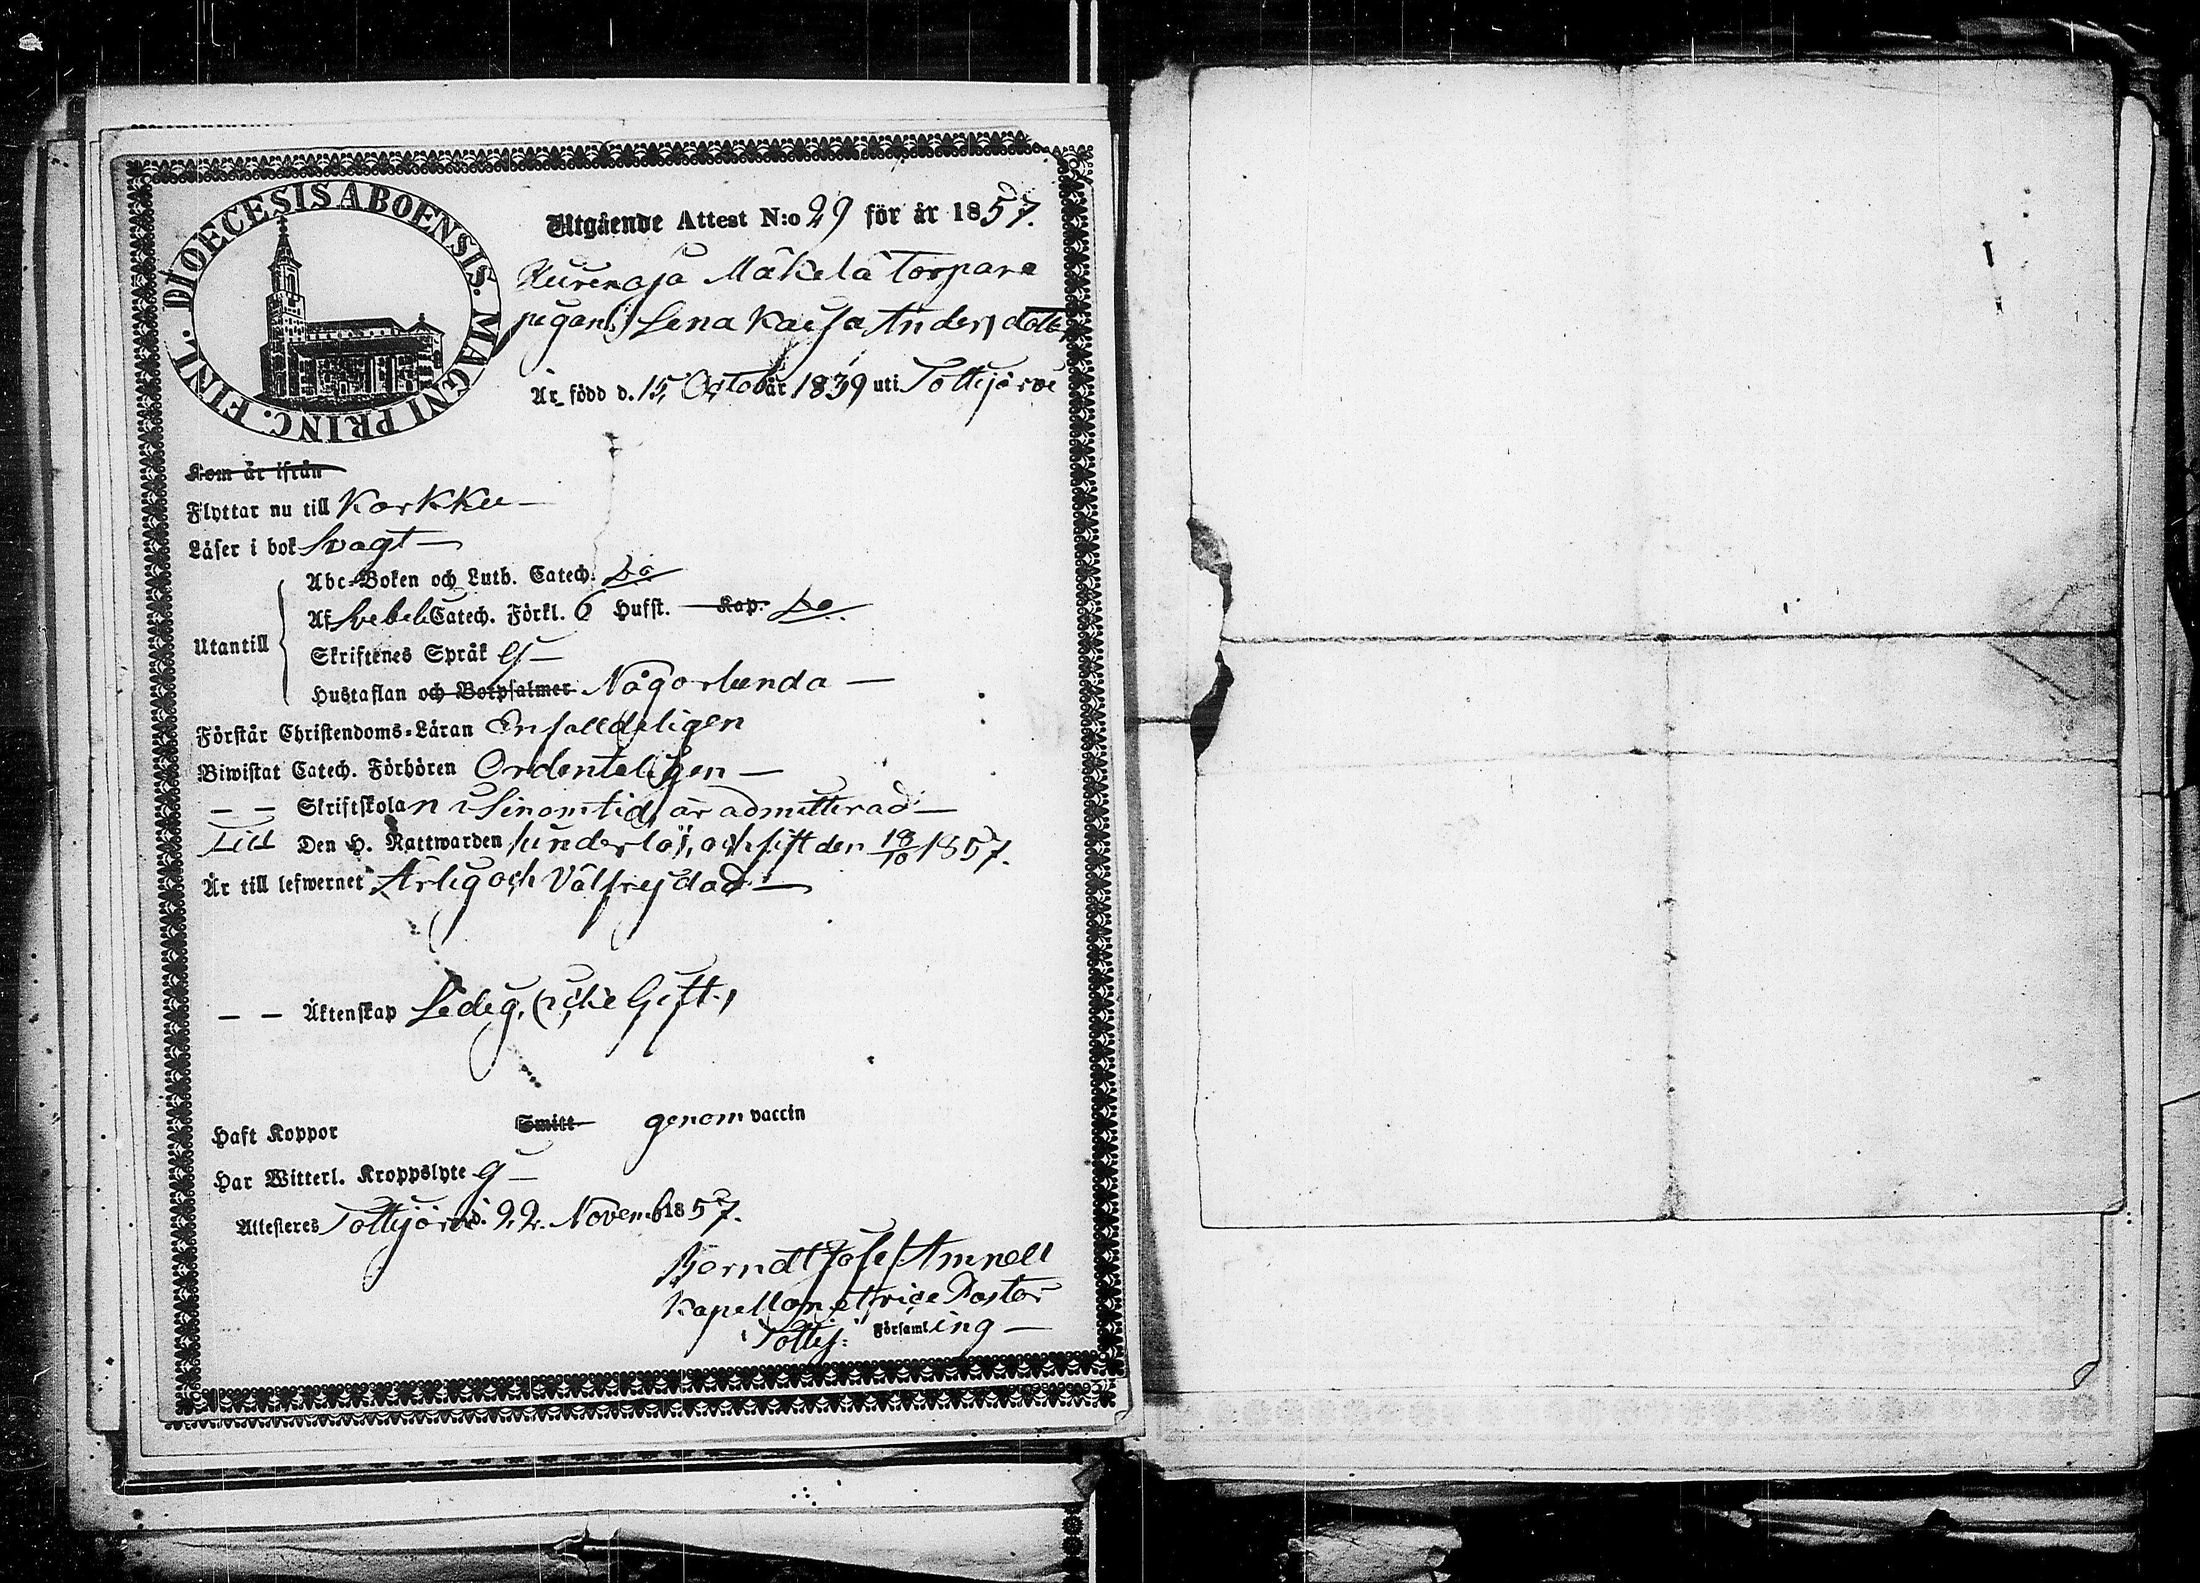 DIOECESIS ABOENSIS. MAGNI PRINC. FINL.
Utgående Attest N:o 29 för år 1857.
Mäkelä Torpare
pigan Lena Kaisa Andersdotter
Är född d. 15 Octob. år 1839 uti Tottijärvi
Kom är ifrån
Flyttar nu till Karkku —
Läser i bok Svagt —
Abc-Boken och Luth. Catech. Do
Af Svebeli Catech. Förkl. 6 Husst. — Kap. Do
Utantill
Skriftenes Språk ej —
Hustaflan och Botpsalmer Någorlunda —
Förstår Christendoms-Läran Enfalldeligen
Biwistat Catech. Förhören Ordenteligen —
— — Skriftskolan i Sinom tid, är admitterad —
Till Den H. Nattwarden sunderlös, och sist den 18/10 1857.
Är till lefwernet Ärlig och Välfrejdad —
— — Äktenskap Ledig, (icke Gift.)
Haft Koppor Smitt genom vaccin
Har Witterl. Kroppslyte ej —
Attesteres Tottijärvi d. 22. Novemb 1857.
Berndt Josef Amnell
Kapellan et vice Pastor
i Tottij: Församling —